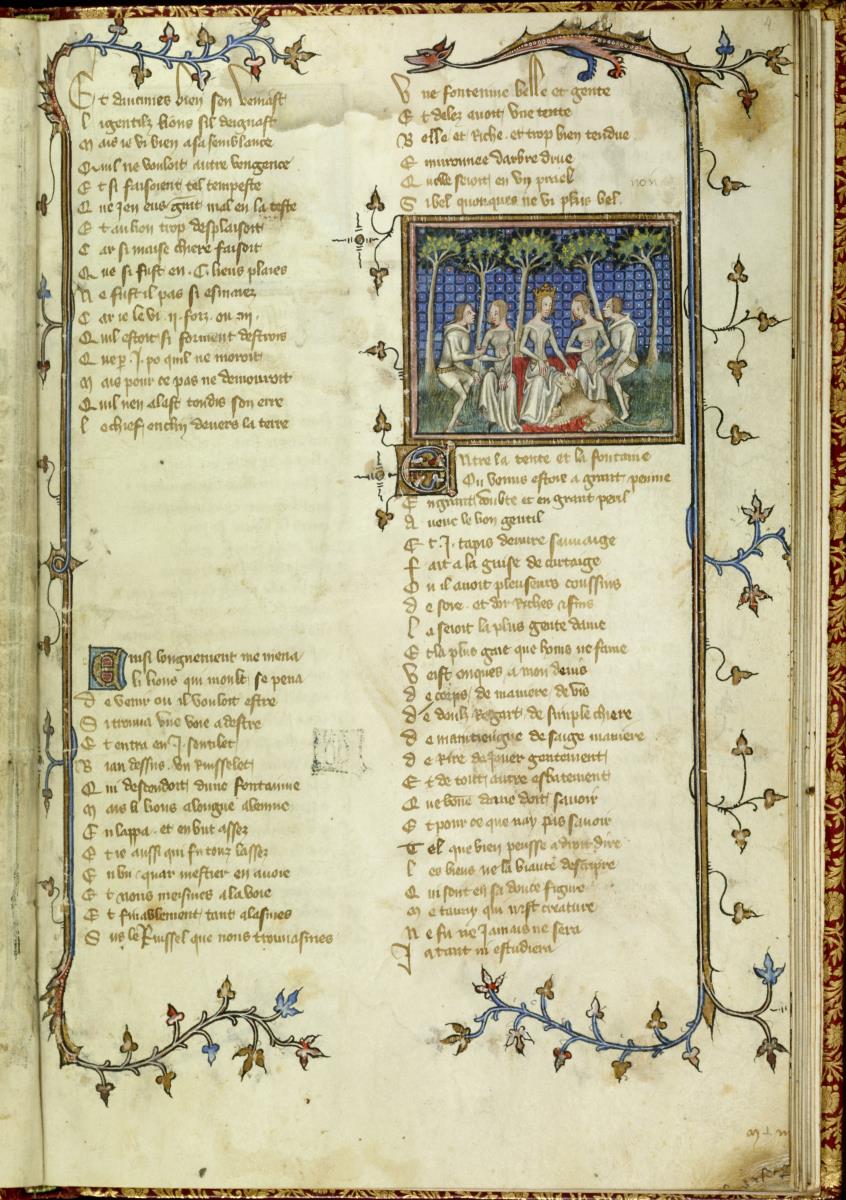 Et dautimes bien sen venjast
Li gentilz lions sil deignast
Mais je vi bien a sa semblance
Quil ne vouloit autre vengence
Et si faisoient tel tempeste
Que jen eus grant mal en la teste
Et au lion trop desplaisoit
Car si maise chiere faisoit
Que si fust en .C. liens plaies
Ne fust il pas si esmaiez
Car je le vi .ii. forz ou .iii.
Quil estoit si forment destrois
Que par .I. po quil ne moroit
Mais pour ce pas ne demouroit
Quil nen alast tousdis son erre
Le chief enclin devers la terre
Ainsi longuement me mena
Li lions qui moult se pena
De venir ou il vouloit estre
Si trouva une voie a destre
Et entra en .I. sentelet
Bian dessus un ruisselet
Qui descendoit dune fontainne
Mais li lions a longue alenne
En lappa et en but assez
Et je aussi qui fu touz lassez
En bu quar mestier en avoie
Et nous meismes a la voie
Et finablement tant alasmes
Sus le Ruissel que nous trouvasmes
4
Une fonteinne belle et gente
Et delez avoit une tente
Belle et Riche et trop bien tendue
Environnee darbre drue
Quelle seoit en un prael
non
Si bel quonques ne vi plus bel
Entre la tente et la fontaine
Ou venus estoie a grant peinne
En grant doubte et en grant peril
Avenc le lion gentil
Et .I. tapis deuvre sauvaige
Fait a la guise de cartaige
Ou il avoit pleuseurs coussins
De soie et dor Riches et fins
La seoit la plus gente dame
Et la plus gaie que homs ne fame
Veist onques a mon devis
De corps de maniere de vis
De doulz Regart de simple chiere
De maintiengne de saige maniere
De Rire de jouer gentement
Et de tout autre esbatement
Que bonne dame doit savoir
Et pour ce que nay pas savoir
Tel que bien peusse a droit dire
Les biens ne la biauté descripre
Qui sont en sa douce figure
Me tairay qui nest creature
Ne fu ne Jamais ne sera
Ja tant ni estudiera